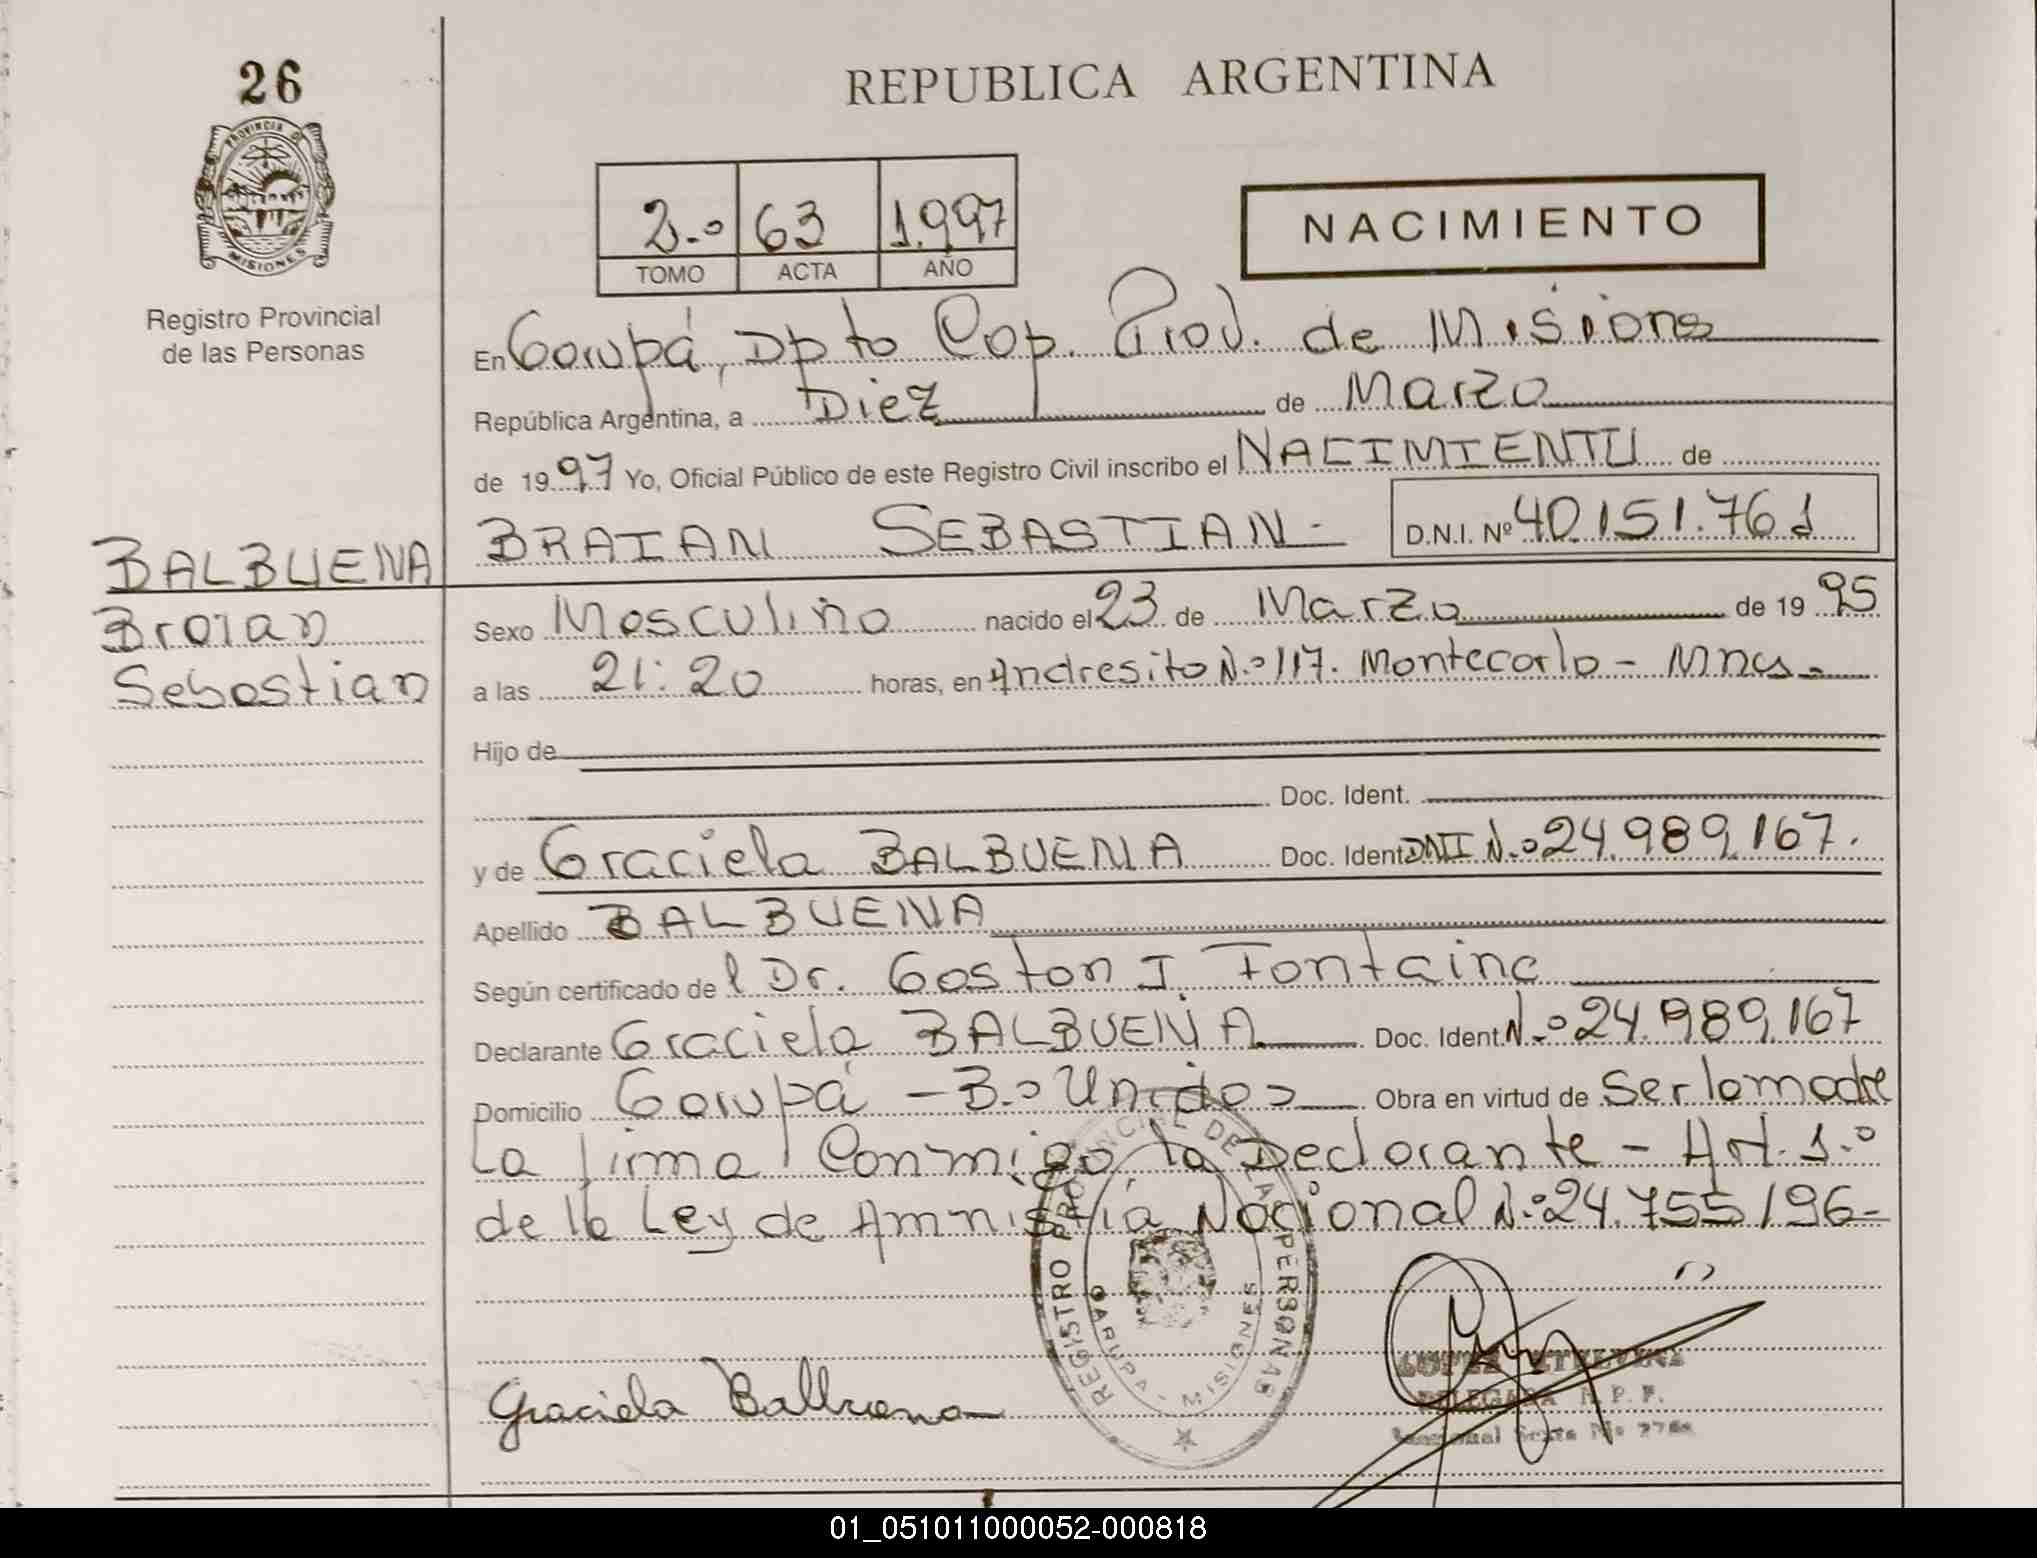 26
PROVINCIA DE
MISIONES
Registro Provincial
de las Personas
REPUBLICA ARGENTINA
2.º 63 1.997
TOMO ACTA AÑO
NACIMIENTO
En Garupá, Dpto Cap. Prov. de Misiones
República Argentina, a Diez de Marzo
de 1997 Yo, Oficial Público de este Registro Civil inscribo el NACIMIENTO de
BRAIAN SEBASTIAN - D.N.I. Nº 40.151.761
BALBUENA
Braian
Sebastian
Sexo Masculino nacido el 23 de Marzo de 1995
a las 21:20 horas, en Andresito N.º 117. Montecarlo - Mnes -
Hijo de
Doc. Ident.
y de Graciela BALBUENA Doc. Ident DNI N.º 24.989.167.
Apellido BALBUENA
Según certificado del Dr. Gaston I Fontaine
Declarante Graciela BALBUENA Doc. Ident. N.º 24.989.167
Domicilio Garupá - B.º Unidos Obra en virtud de Ser la madre
La firma Conmigo la Declarante - Art. 1.º
de la Ley de Amnistía Nacional N.º 24.755/96-
REGISTRO PROVINCIAL DE LAS PERSONAS
GARUPA - MISIONES
Graciela Balbuena
LOPEZ
DELEGADA R.P.P.
01_051011000052-000818